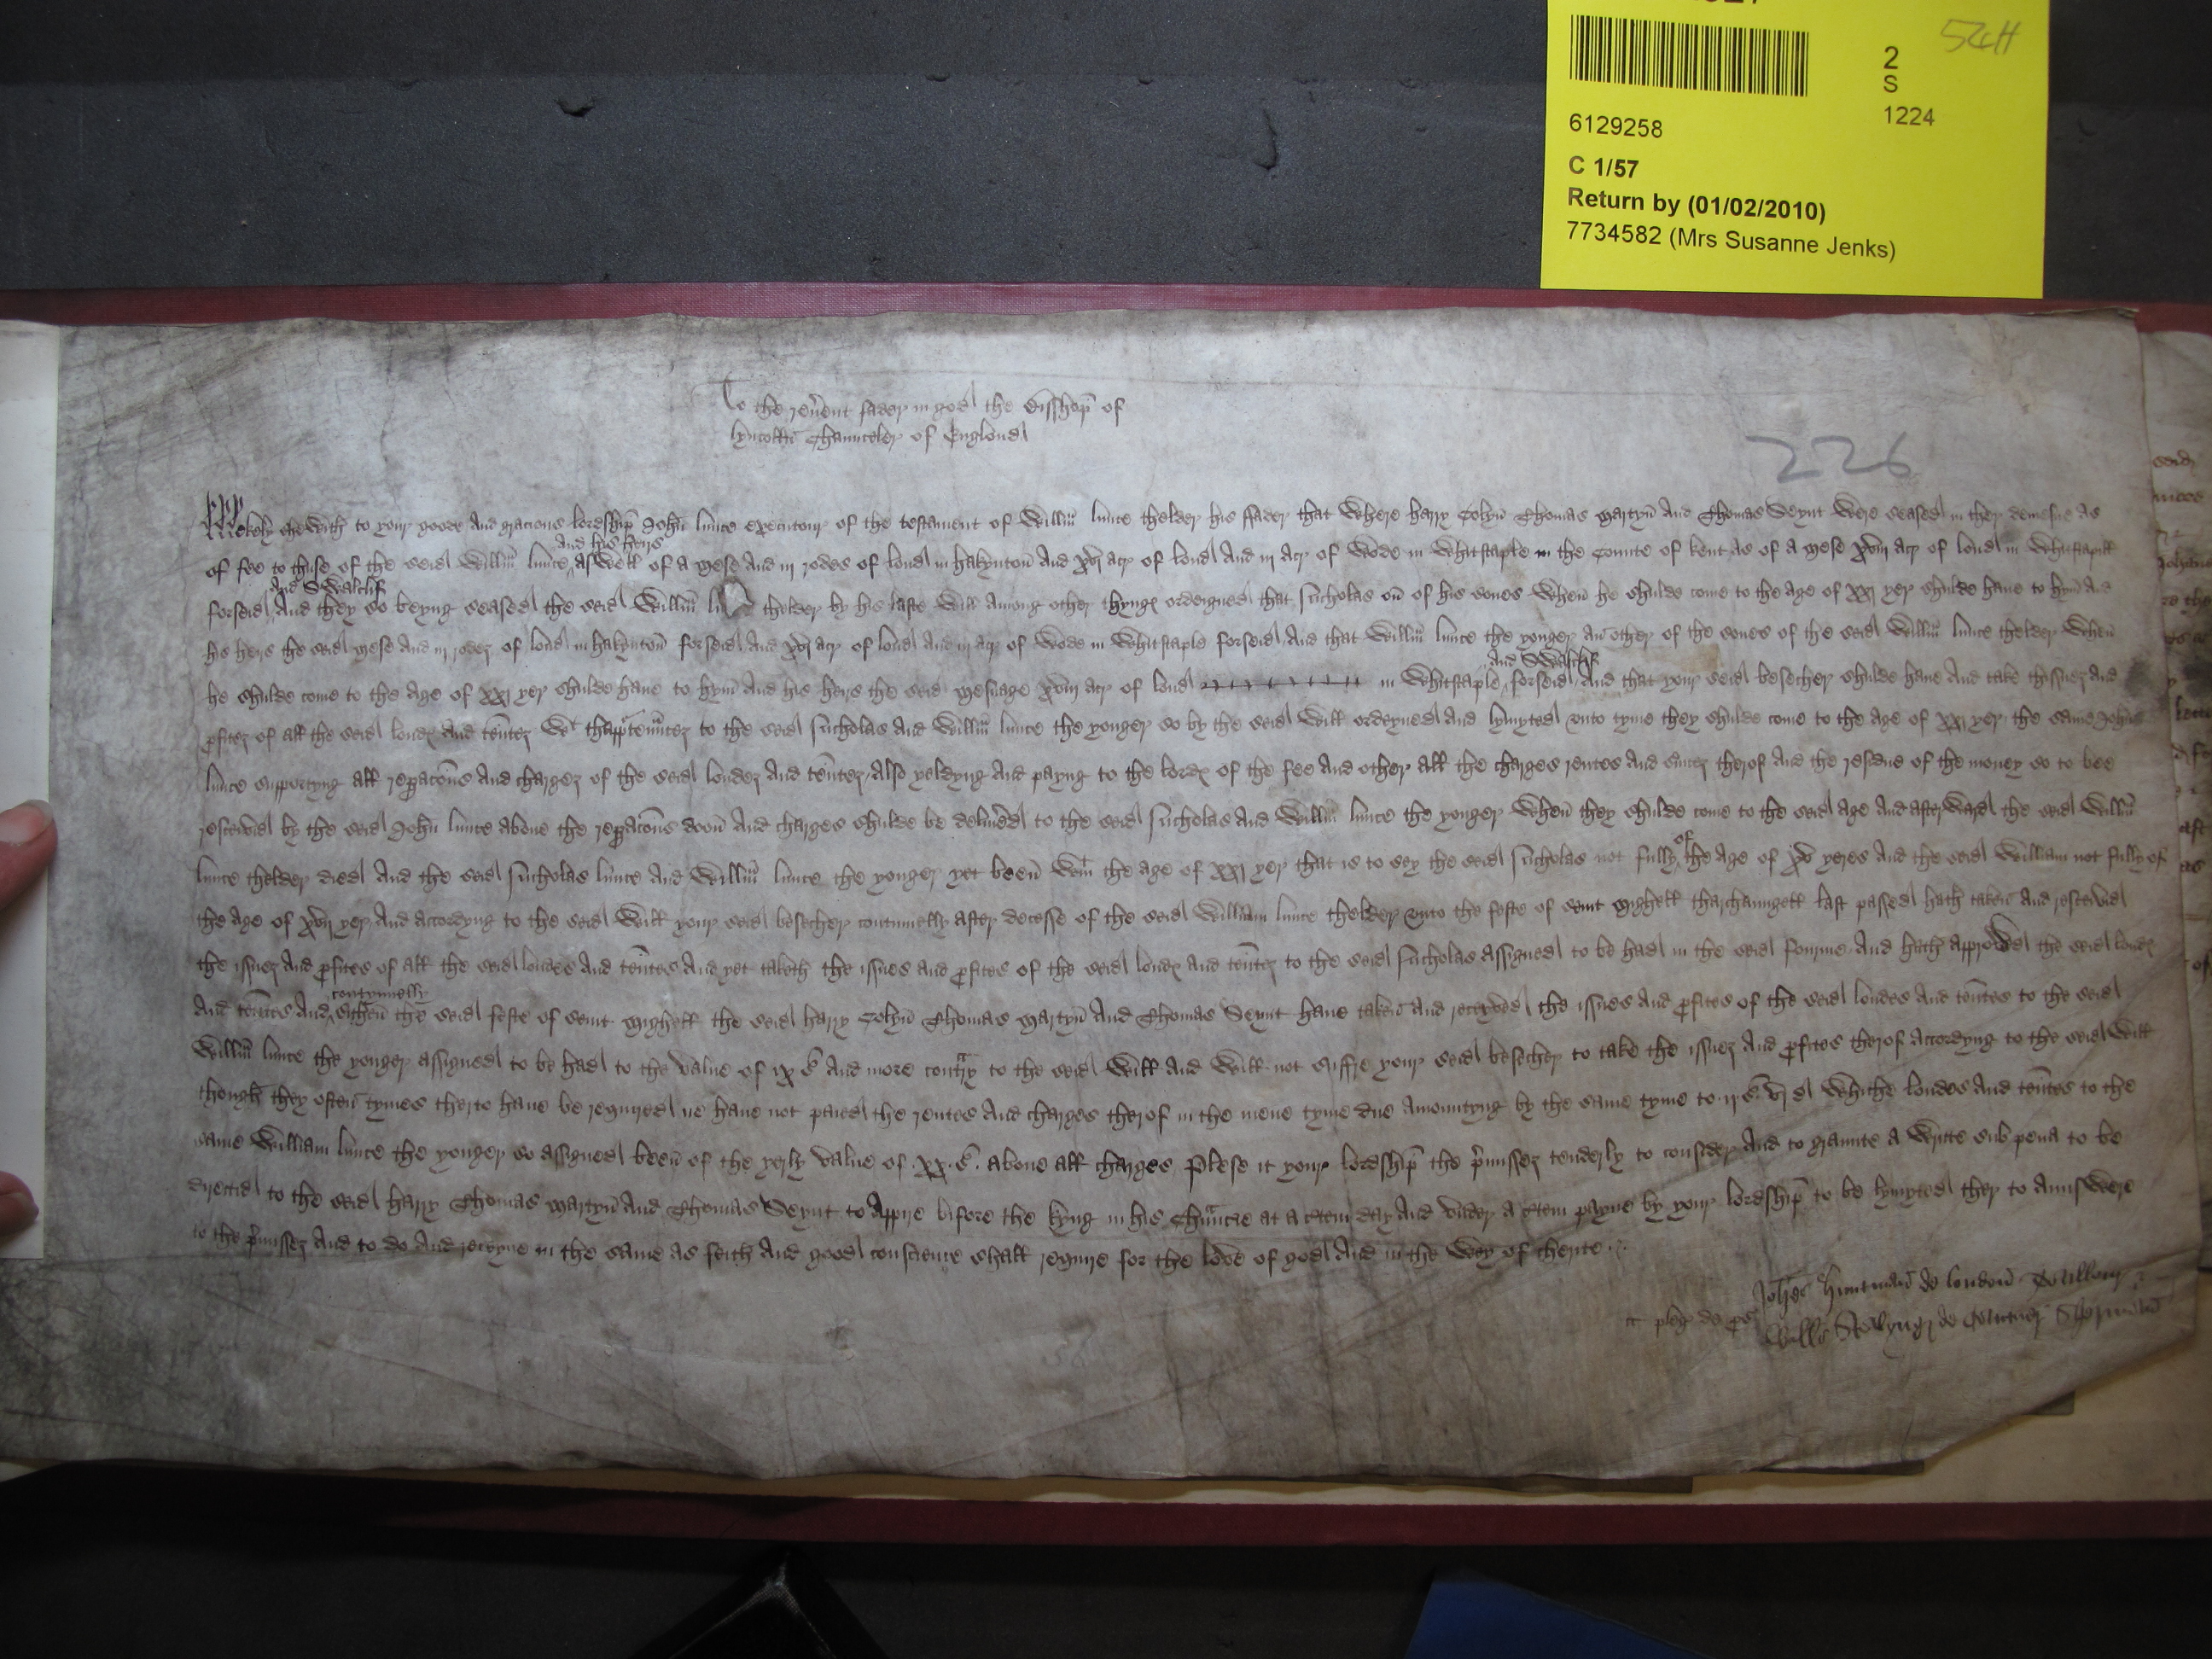 52H
2
S
1224
6129258
C 1/57
Return by (01/02/2010)
7734582 (Mrs Susanne Jenks)
To the reu̾ent fader in god the Bisshop̄ of
lyncolñ Chaunceler of Englond
226
Mekely shewith to your goode and gracious lordship̄ John̄ lunce executour of the testament of Willm̄ lunce thelder his ffader that where harry Colyn̄ Thomas Martyn̄ And Thomas Seynt were seased in ther demesne as
and his heirs
of fee to thuse of the seid Willm̄ lunce aswell of a mese and iij rodes of lond in hakynton̄ And xvj acr of lond And iij acr of wode in Whitstaple in the Counte of kent as of a mese xviij acr of lond in Whitstapll
And Swalclif
forseid And they so beyng seased the seid Willm̄ thelder by his laste will among other thyngꝭ ordeigned that Nicholas on̄ of his sones when̄ he shulde come to the age of xxj yer shulde haue to hym̄ And
his heirs the seid mese and iij rodeȝ of lond in hakynton̄ forseid And xvj acr of lond and iij acr of wode in Whitstaple forseid And that Willm̄ lunce the yonger an̄ other of the sones of the seid Willm̄ lunce thelder when̄
and Swalclif
he shulde come to the age of xxj yer shulde haue to hym̄ And his heirs the seid mesuage xviij acr of lond in Whitstaple forseid And that your seid besecher shulde haue And take thissueȝ and
ꝓfiteȝ of all the seid londeȝ and ten̄teȝ wt to the seid Nicholas And Willm̄ lunce the yonger so by the seid Will ordeyned and lymyted vnto tyme they shulde come to the age of xxj yer the same John̄
lunce supportyng all reꝑacon̄s And chargeȝ of the seid londeȝ and ten̄teȝ Also yeldyng And payng to the lordeȝ of the fee And other all the charges rentes And therof And the residue of the money so to bee
resceiud by the seid John̄ lunce aboue the reꝑacon̄s don̄ And charges shulde be deliu̾ed to the seid Nicholas And Willm̄ lunce the yonger when̄ they shulde come to the seid age And afterward the seid Willm̄
of
lunce thelder died And the seid Nicholas lunce And Willm̄ lunce the yonger yet been̄ wtin the age of xxj yer that is to sey the seid Nicholas not fully the age of xv yeres And the seid William not fully of
the age of xvij yer And accordyng to the seid Will your seid besecher contynuelly after decesse of the seid William lunce thelder vnto the feste of seint Mighell tharchaungell last passed hath taken̄ And resceiud
the issueȝ And ꝓfites of all the seid londes And ten̄tes And yet taketh the issues and ꝓfites of the seid londeȝ and ten̄teȝ to the seid Nicholas assigned to be had in the seid fourme And hath approwed the seid londeȝ
contynuelly
And ten̄tes And sithen̄ the seid feste of seint Mighell the seid harry Colyn̄ Thomas Martyn̄ And Thomas Seynt haue taken̄ and receyved the issues And ꝓfites of the seid londes And ten̄tes to the seid
Willm̄ lunce the yonger assigned to be had to the value of ix s̄ And more contᵃry to the seid Will And will not suffre your seid besecher to take the issueȝ And ꝓfites therof accordyng to the seid Will
though they often̄ tymes therto haue be required ne haue not paied the rentes And charges therof in the mene tyme due Amountyng by the same tyme to ij s̄ vj d whiche londes And ten̄tes to the
same William lunce the yonger so assigned been̄ of the yerly value of xx s̄. aboue all charges Plese it your lordship̄ the p̄misseȝ tenderly to consider And to graunte a writte sub pena to be
directid to the seid harry Thomas Martyn̄ And Thomas Seynt to Appire bifore the kyng in his Chaun̄cre at a c̾tein day And vnder a c̾tein payne by your lordship̄ to be lymyted ther to Aunswere
to the p̄misseȝ And to do And receyue in the same as feith And good conscience shall require for the love of god And in the wey of cherite
pleg̾ de ꝓs̄ Joh̄es huntman̄ de london̄
Will̄s de Couentr̾ Sherman̄